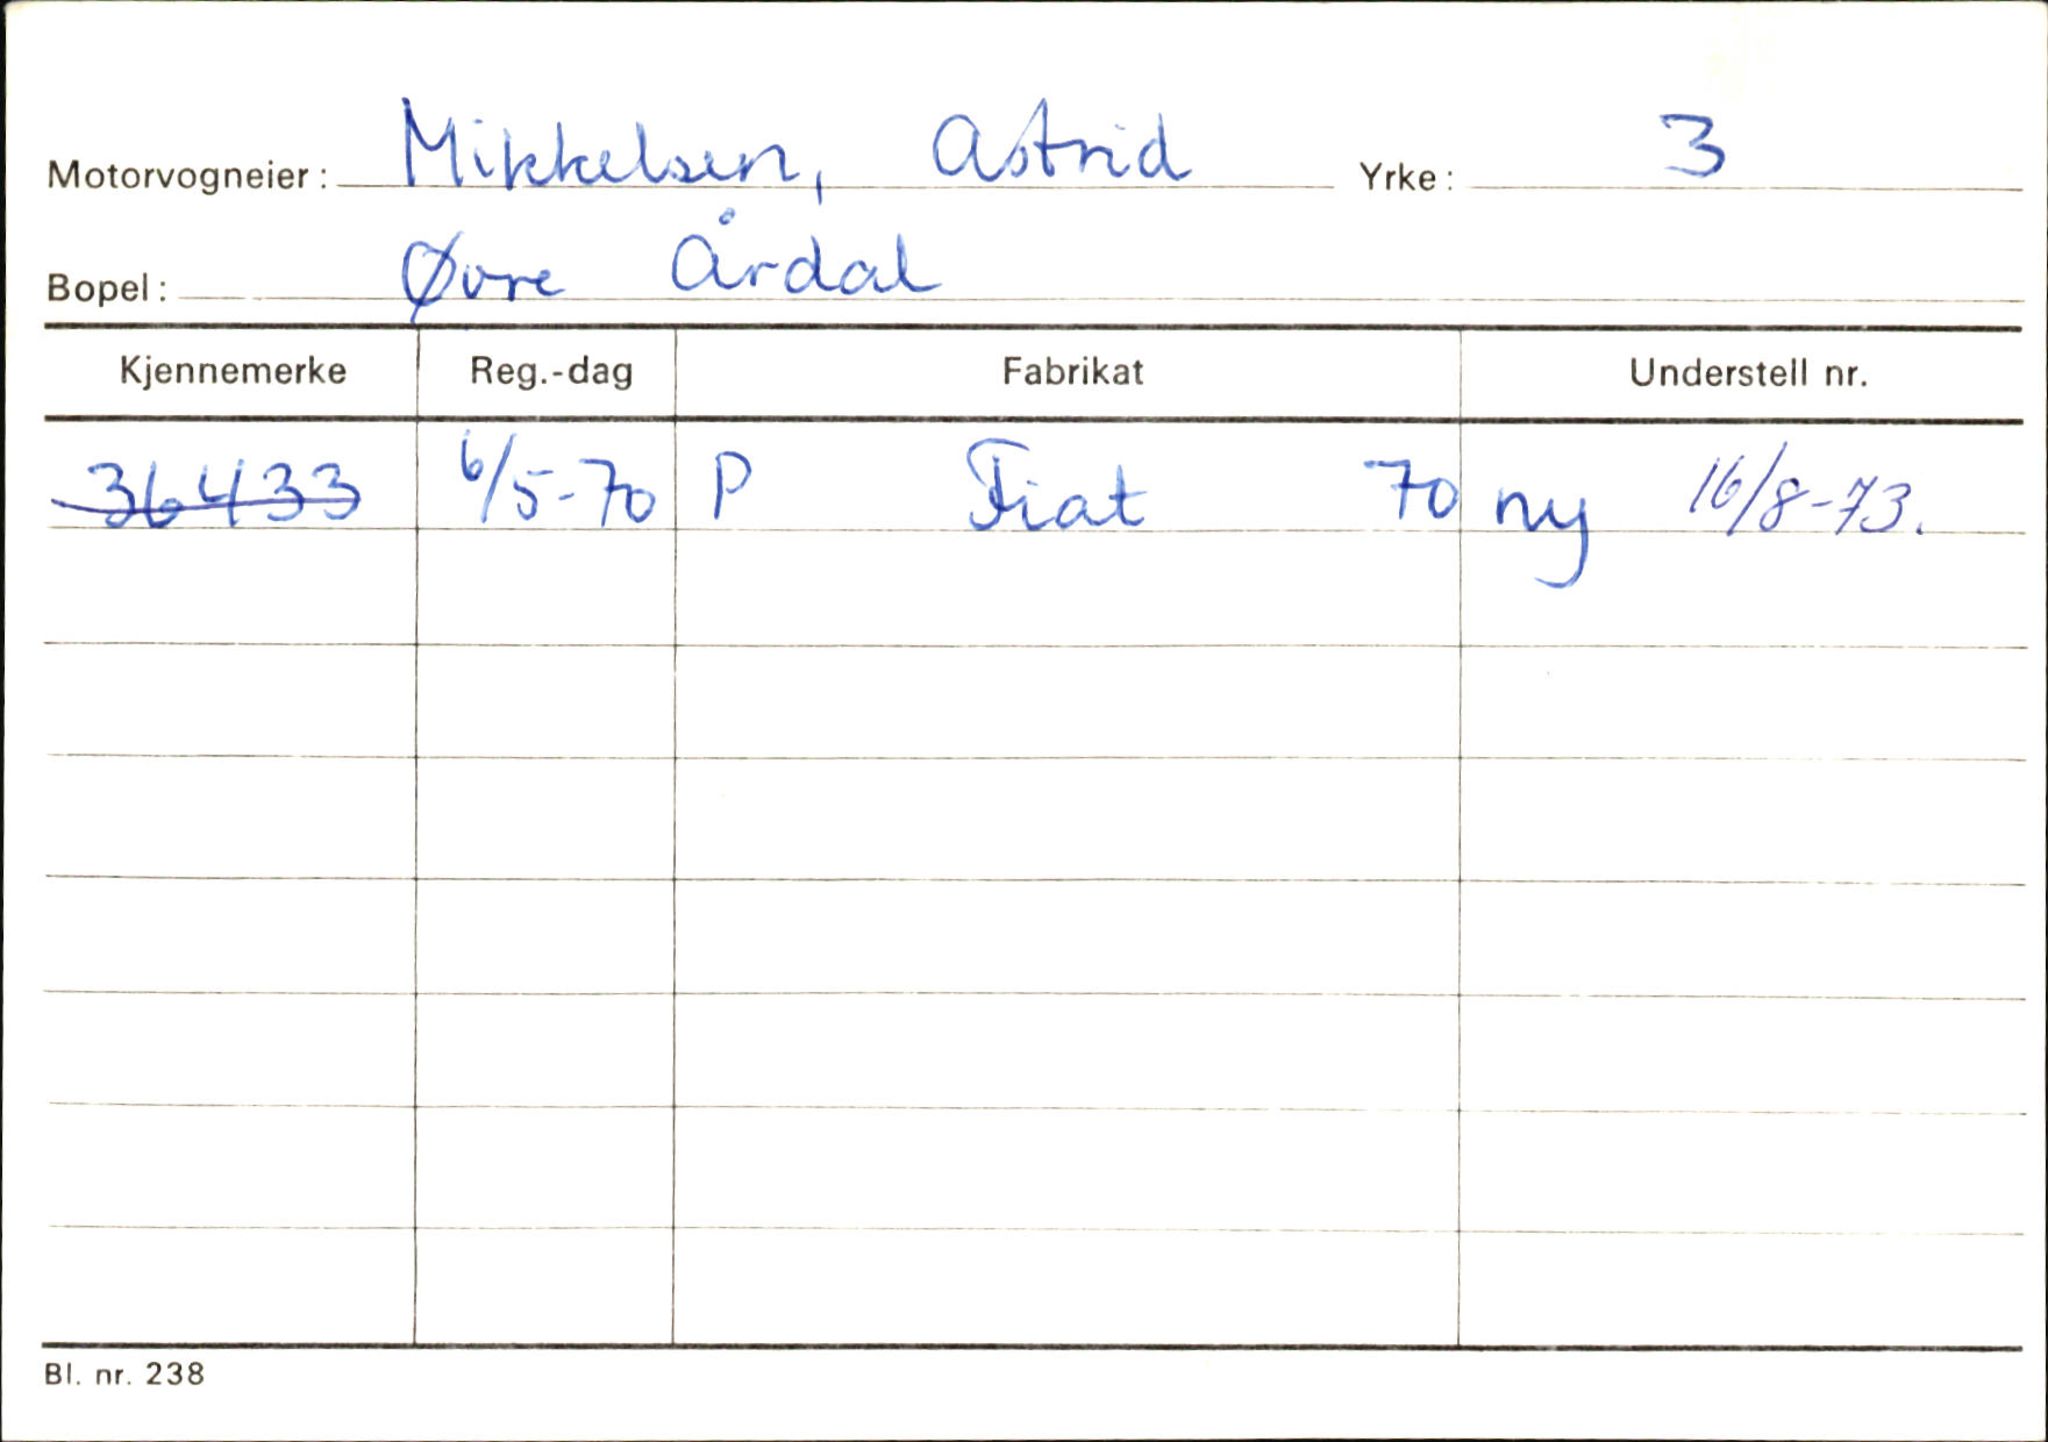 Motorvogneier: Mikkelsen, Astrid Yrke: 3
Bopel: Øvre Årdal
Kjennemerke Reg.-dag Fabrikat Understell nr.
36433 6/5-70 P Fiat 70 ny 16/8-73.
Bl. nr. 238